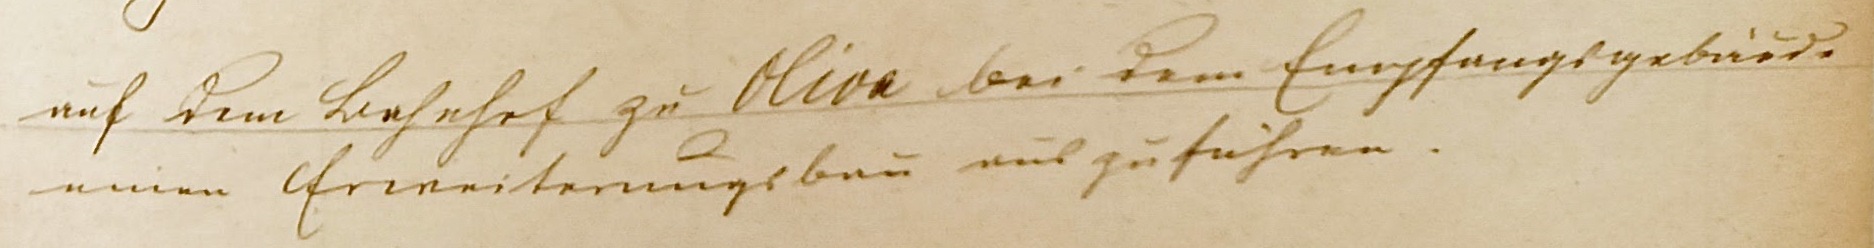 auf dem Bahnhof zu Oliva bei dem Empfangsgebäude
einen Erweiterungsbau auszuführen.